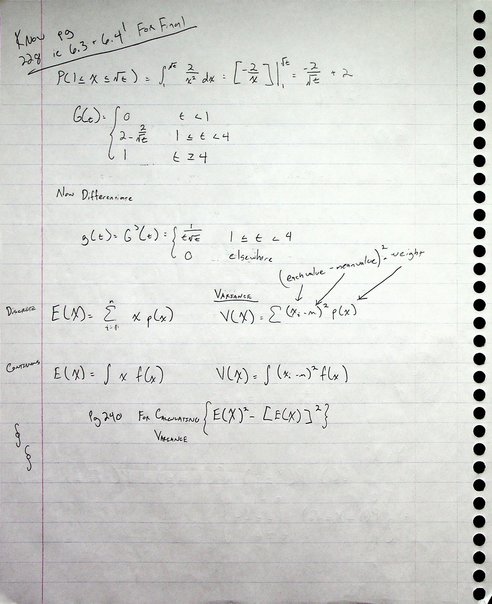 Know pg
228 ie 6.3 + 6.4! For Final
P(1 ≤ X ≤ √t) = ∫₁^√t 2/x² dx = [-2/x]|₁^√t = -2/√t + 2
G(t) = { 0 t < 1
2 - 2/√t 1 ≤ t < 4
1 t ≥ 4
Now Differentiate
g(t) = G'(t) = { 1/t√t 1 ≤ t < 4
0 elsewhere
(each value - mean value)² · weight
Variance
Discrete E(X) = Σ x p(x) V(X) = Σ (xᵢ - m)² p(x)
Continuous E(X) = ∫ x f(x) V(X) = ∫ (xᵢ - m)² f(x)
Pg 240 For Calculating { E(X)² - [E(X)]² }
Variance